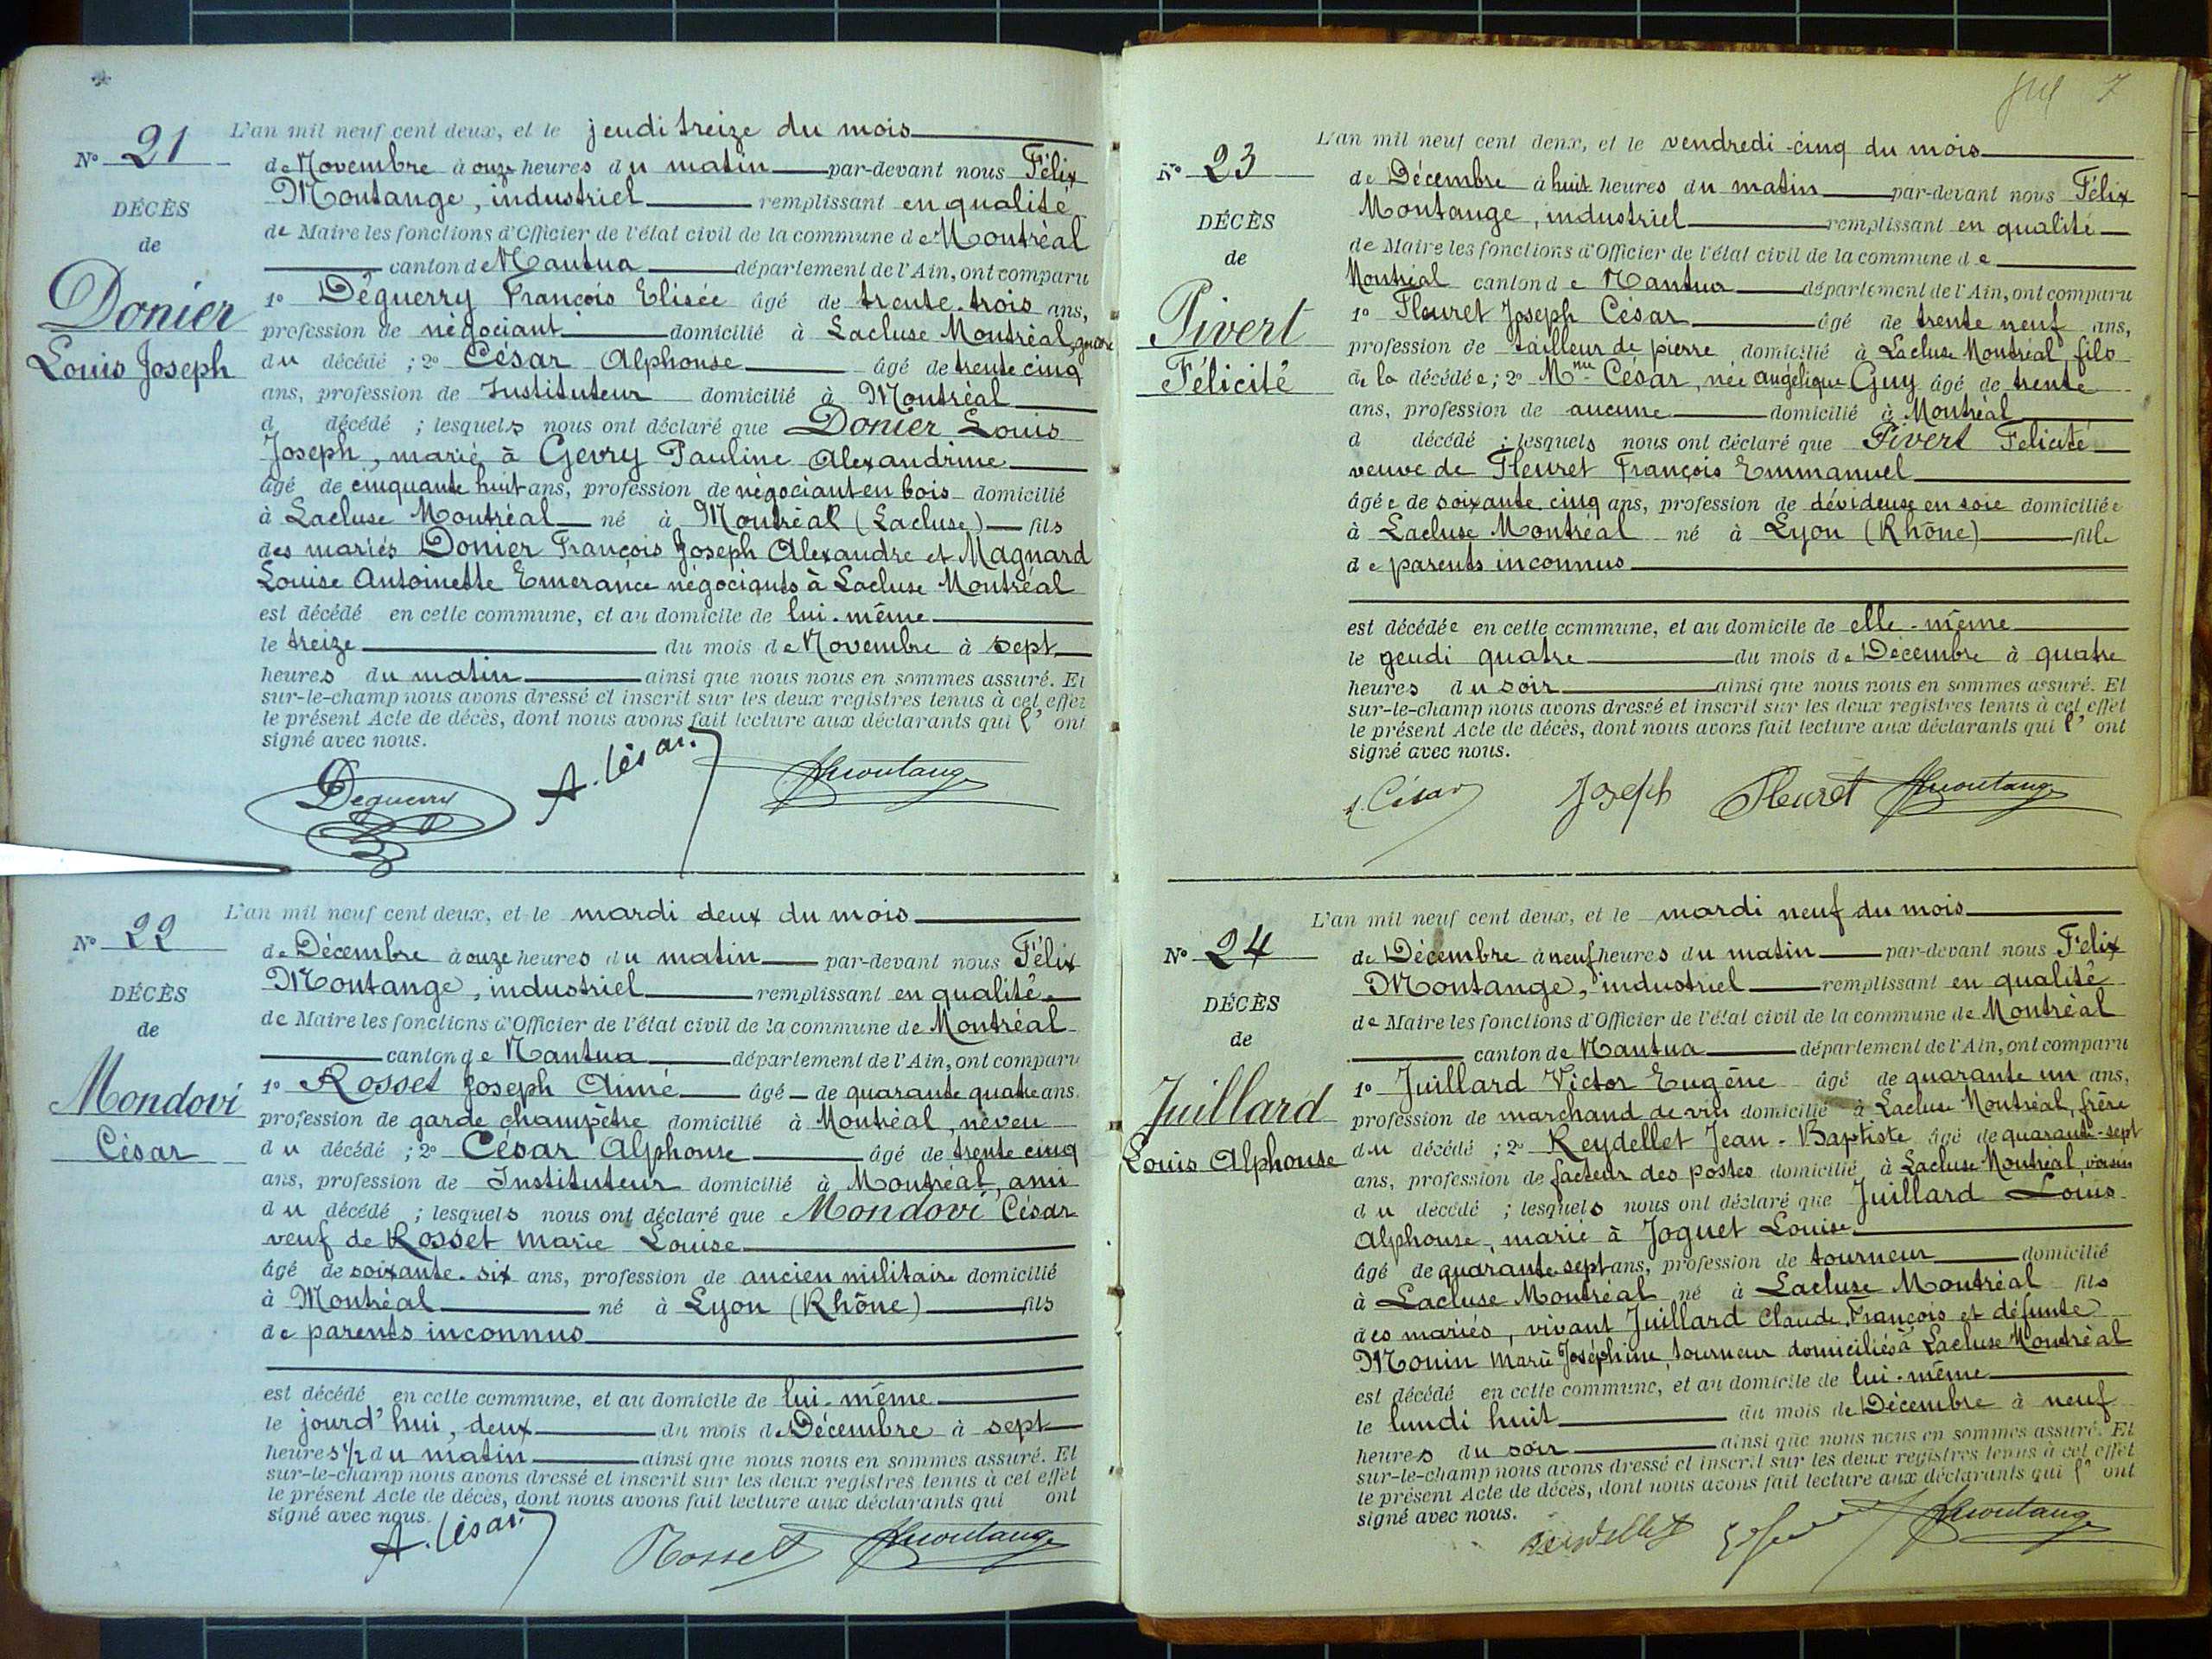 L'an mil neuf cent deux, et le jeudi treize du mois
N° 21
de Novembre à onze heures du matin par-devant nous Félix
Montange, industriel remplissant en qualité
DÉCÈS
de Maire les fonctions d'Officier de l'état civil de la commune de Montréal
de
canton de Nantua département de l'Ain, ont comparu
Donier
1° Déguerry François Elisée âgé de trente-trois ans,
profession de négociant domicilié à Lacluse Montréal, gendre
Louis Joseph
du décédé ; 2° César Alphonse âgé de trente cinq
ans, profession de Instituteur domicilié à Montréal
d décédé ; lesquels nous ont déclaré que Donier Louis
Joseph, marié à Gevry Pauline Alexandrine
âgé de cinquante huit ans, profession de négociant en bois domicilié
à Lacluse Montréal né à Montréal (Lacluse) fils
des mariés Donier François Joseph Alexandre et Magnard
Louise Antoinette Emerance négociants à Lacluse Montréal
est décédé en cette commune, et au domicile de lui-même
le treize du mois de Novembre à sept
heures du matin ainsi que nous nous en sommes assuré. Et
sur-le-champ nous avons dressé et inscrit sur les deux registres tenus à cet effet
le présent Acte de décès, dont nous avons fait lecture aux déclarants qui l' ont
signé avec nous.
Deguerry A. César Fmontange
L'an mil neuf cent deux, et le mardi deux du mois
N° 22
de Décembre à onze heures du matin par-devant nous Félix
Montange, industriel remplissant en qualité
DÉCÈS
de Maire les fonctions d'Officier de l'état civil de la commune de Montréal
de
canton de Nantua département de l'Ain, ont comparu
Mondovi
1° Rosset Joseph Aimé âgé de quarante quatre ans.
profession de garde champêtre domicilié à Montréal, neveu
César
du décédé ; 2° César Alphonse âgé de trente cinq
ans, profession de Instituteur domicilié à Montréal, ami
du décédé ; lesquels nous ont déclaré que Mondovi César
veuf de Rosset Marie Louise
âgé de soixante-six ans, profession de ancien militaire domicilié
à Montréal né à Lyon (Rhône) fils
de parents inconnus
est décédé en cette commune, et au domicile de lui-même
le jourd'hui, deux du mois de Décembre à sept
heures 1/2 du matin ainsi que nous nous en sommes assuré. Et
sur-le-champ nous avons dressé et inscrit sur les deux registres tenus à cet effet
le présent Acte de décès, dont nous avons fait lecture aux déclarants qui ont
signé avec nous.
A. César Rosset Fmontange
7
L'an mil neuf cent deux, et le vendredi cinq du mois
N° 23
de Décembre à huit heures du matin par-devant nous Félix
Montange, industriel remplissant en qualité
DÉCÈS
de Maire les fonctions d'Officier de l'état civil de la commune de
de
Montréal canton de Nantua département de l'Ain, ont comparu
Pivert
1° Fleuret Joseph César âgé de trente neuf ans,
profession de tailleur de pierre domicilié à Lacluse Montréal, fils
Félicité
de la décédée ; 2° Mme César, née angélique Guy âgé de trente
ans, profession de aucune domicilié à Montréal
d décédé ; lesquels nous ont déclaré que Pivert Félicité
veuve de Fleuret François Emmanuel
âgée de soixante cinq ans, profession de dévideuse en soie domiciliée
à Lacluse Montréal né à Lyon (Rhône) fille
de parents inconnus
est décédée en cette commune, et au domicile de elle-même
le geudi quatre du mois de Décembre à quatre
heures du soir ainsi que nous nous en sommes assuré. Et
sur-le-champ nous avons dressé et inscrit sur les deux registres tenus à cet effet
le présent Acte de décès, dont nous avons fait lecture aux déclarants qui l' ont
signé avec nous.
A. César Joseph Fleuret Fmontange
L'an mil neuf cent deux, et le mardi neuf du mois
N° 24
de Décembre à neuf heures du matin par-devant nous Félix
Montange, industriel remplissant en qualité
DÉCÈS
de Maire les fonctions d'Officier de l'état civil de la commune de Montréal
de
canton de Nantua département de l'Ain, ont comparu
Juillard
1° Juillard Victor Eugène âgé de quarante un ans,
profession de marchand de vin domicilié à Lacluse Montréal, frère
Louis Alphonse
du décédé ; 2° Reydellet Jean-Baptiste âgé de quarante-sept
ans, profession de facteur des postes domicilié à Lacluse Montréal, voisin
du décédé ; lesquels nous ont déclaré que Juillard Louis
Alphonse, marié à Joguet Louise
âgé de quarante sept ans, profession de tourneur domicilié
à Lacluse Montréal né à Lacluse Montréal fils
des mariés, vivant Juillard Claude, François et défunte
Monin Marie Joséphine, tourneur domiciliés à Lacluse Montréal
est décédé en cette commune, et au domicile de lui-même
le lundi huit du mois de Décembre à neuf
heures du soir ainsi que nous nous en sommes assuré. Et
sur-le-champ nous avons dressé et inscrit sur les deux registres tenus à cet effet
le présent Acte de décès, dont nous avons fait lecture aux déclarants qui l' ont
signé avec nous.
Reydellet Fmontange